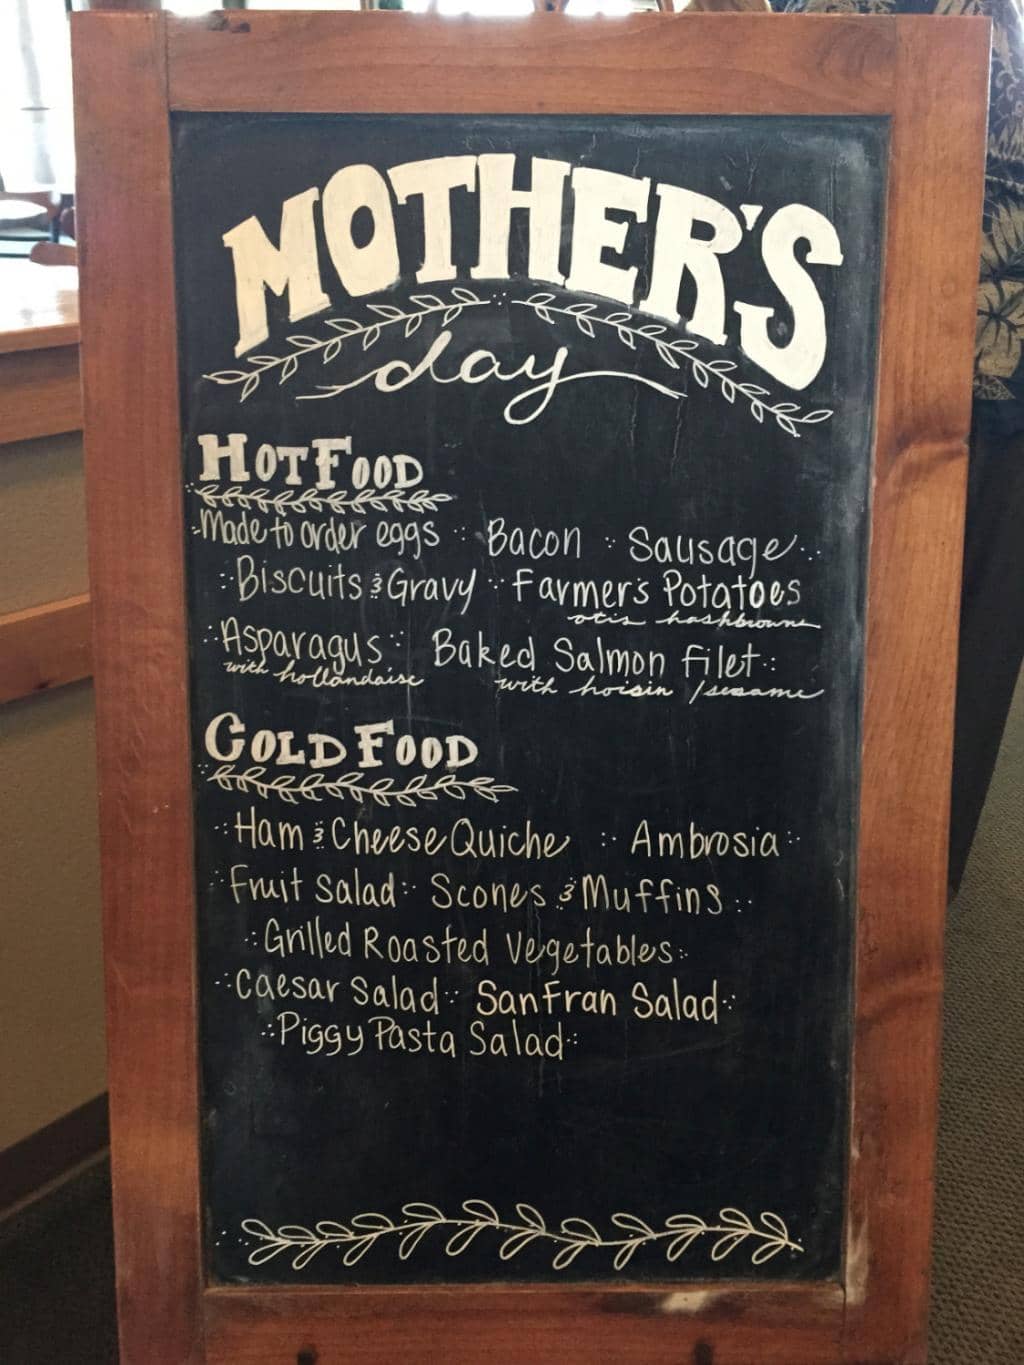 MOTHER'S
day
HOT FOOD
Made to order eggs Bacon Sausage
Biscuits & Gravy Farmer's Potatoes
otis hashbrowns
Asparagus Baked Salmon Filet
with hollandaise with hoisin / sesame
COLD FOOD
Ham & Cheese Quiche Ambrosia
Fruit Salad Scones & Muffins
Grilled Roasted Vegetables
Caesar Salad San Fran Salad
Piggy Pasta Salad